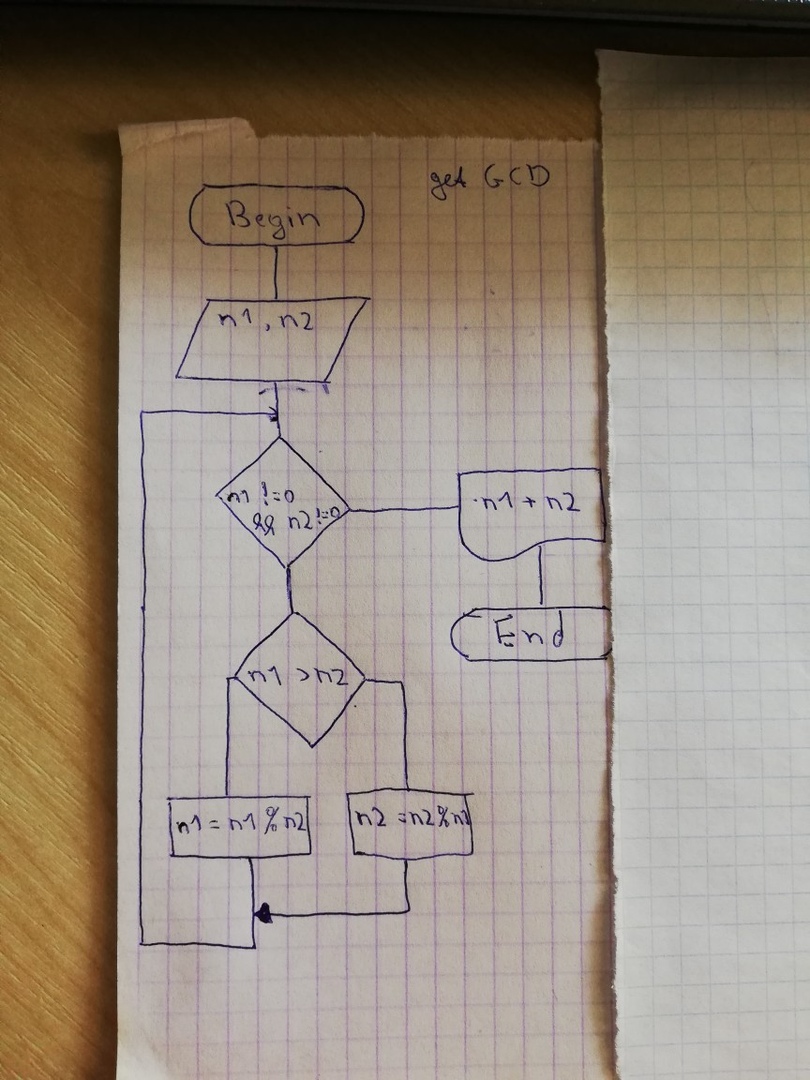 get GCD
Begin
n1, n2
n1 != 0
&& n2 != 0
n1 + n2
End
n1 > n2
n1 = n1 % n2
n2 = n2 % n1